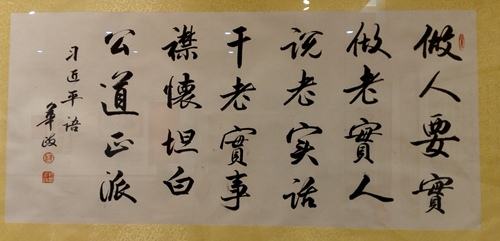 做人要實
做老實人
説老实话
干老實事
襟懷坦白
公道正派
习近平语
華政